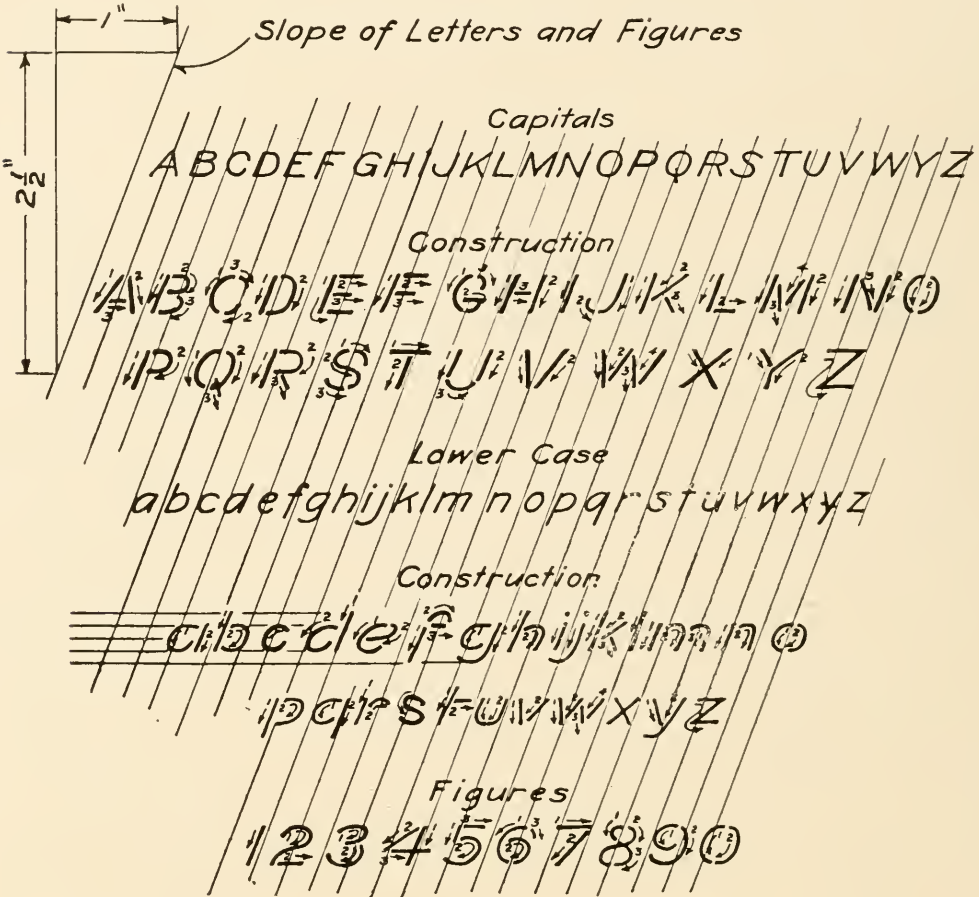 1"
Slope of Letters and Figures
2½"
Capitals
ABCDEFGHIJKLMNOPQRSTUVWYZ
Construction
A B C D E F G H I J K L M N O
P Q R S T U V W X Y Z
Lower Case
abcdefghijklmnopqrstuvwxyz
Construction
a b c d e f g h i j k l m n o
p q r s t u v w x y z
Figures
1 2 3 4 5 6 7 8 9 0